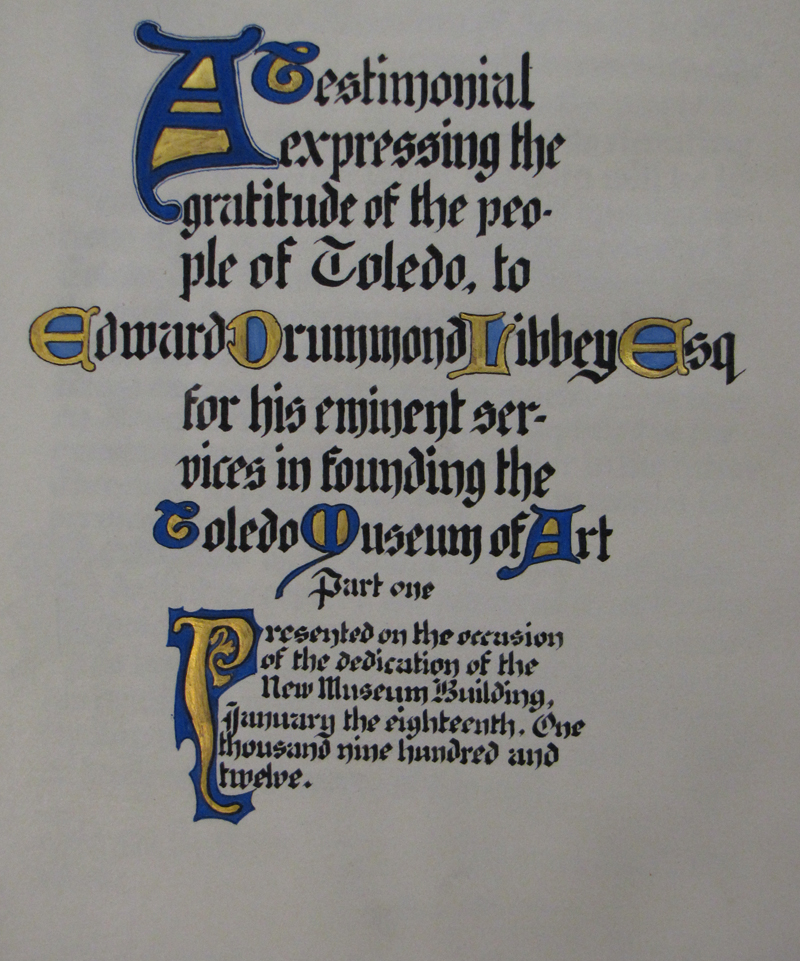 A Testimonial
expressing the
gratitude of the peo-
ple of Toledo, to
Edward Drummond Libbey Esq
for his eminent ser-
vices in founding the
Toledo Museum of Art
Part one
Presented on the occasion
of the dedication of the
New Museum Building,
January the eighteenth. One
thousand nine hundred and
twelve.